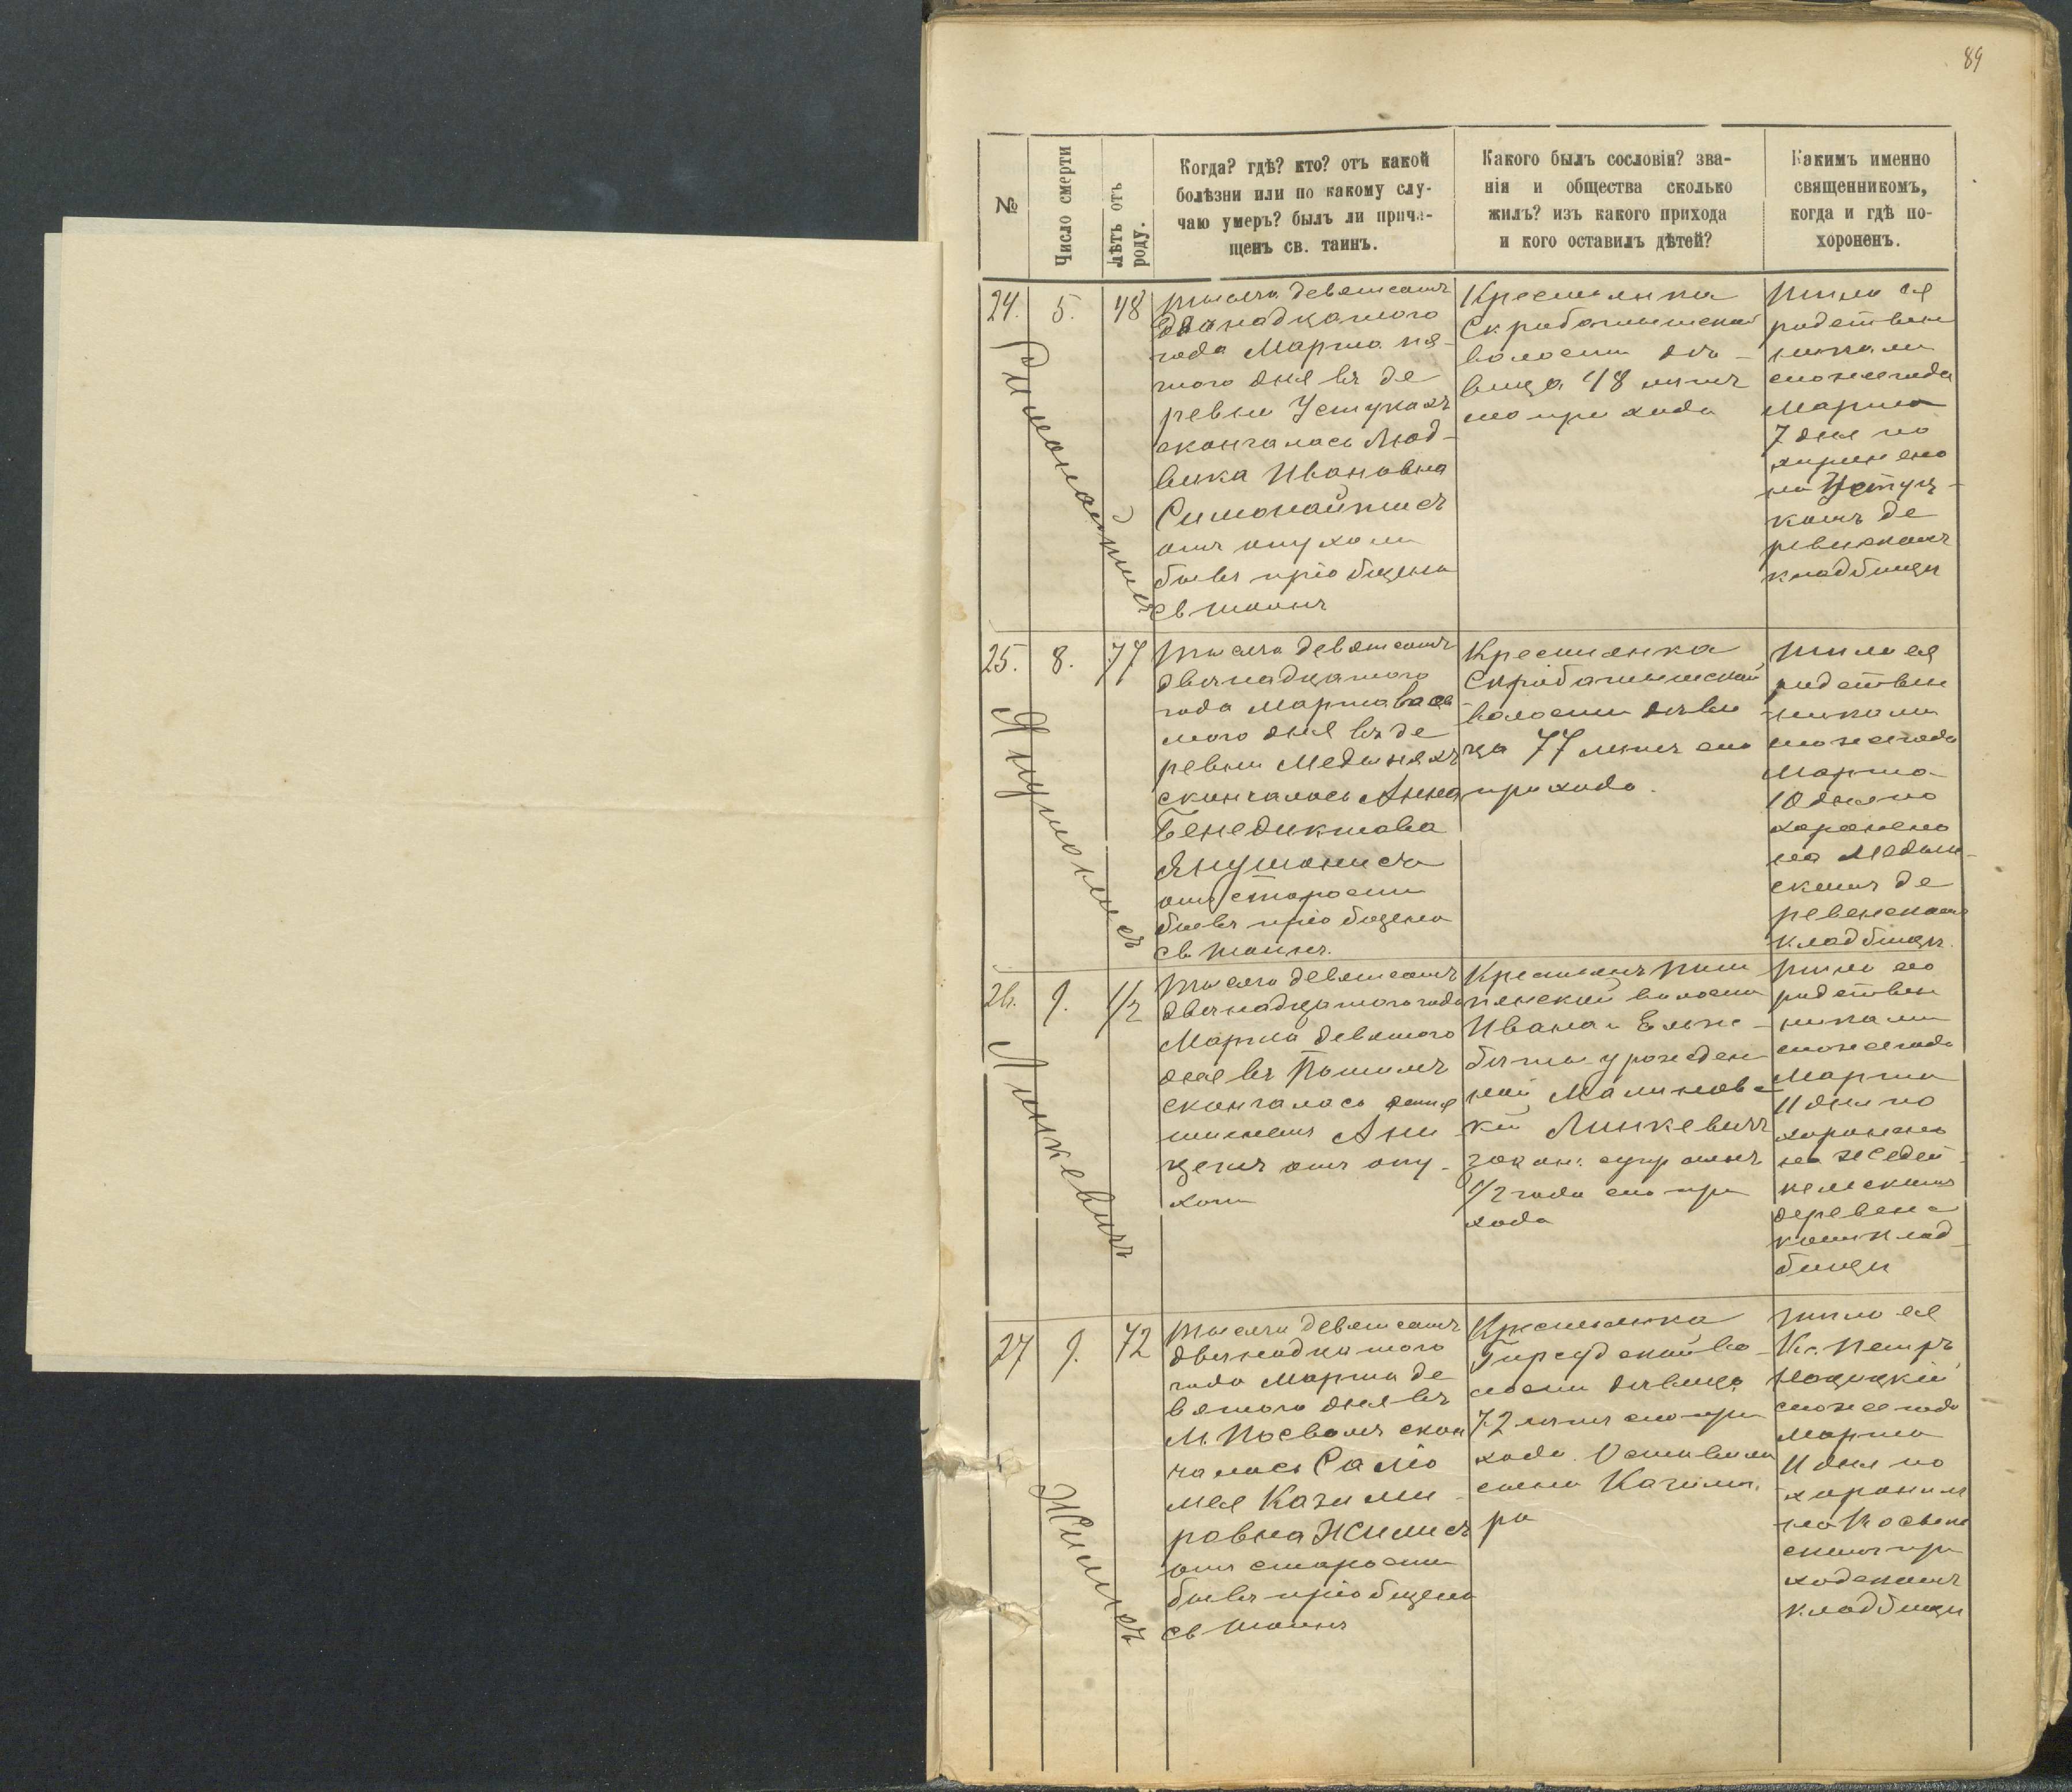 89
№
Число смерти
Лѣтъ отъ
роду.
Когда? гдѣ? кто? отъ какой
болѣзни или по какому слу-
чаю умеръ? былъ ли прича-
щенъ св. таинъ.
Какого былъ сословія? зва-
нія и общества сколько
жилъ? изъ какого прихода
и кого оставилъ дѣтей?
Какимъ именно
священникомъ,
когда и гдѣ по-
хороненъ.
24.
5.
48
Симонайтисъ
тысяча девятьсотъ
двѣнадцатого
года Марта пя-
того дня въ де
ревни Устукахъ
скончалась Люд-
вика Ивановна
Симонайтисъ
отъ опухоли
бывъ пріобщена
св таинъ
Крестьянка
Скрабатишской
волости дѣ-
вица 48 лѣтъ
сто прихода
тѣло ея
родствен
никами
сто же года
Марта
7 дня по
хоронено
на Устуц-
комъ де
ревенскомъ
кладбищи
25.
8.
77
Янушонисъ
Тысяча девятьсотъ
двѣнадцатого
года Марта вось
мого дня въ де
ревни Мединяхъ
скончалась Анна
Бенедиктова
Янушонисъ
отъ старости
бывъ пріобщена
св таинъ.
Крестьянка
Скрабатишской
волости дѣви
ца 77 лѣтъ сто
прихода.
тѣло ея
родствен
никами
сто же года
Марта
10 дня по
хоронено
на Медын-
скомъ де
ревенскомъ
кладбищи.
26.
9.
1/2
Линкевичъ
Тысяча девятьсотъ
двѣнадцатого года
Марта девятого
дня въ
скончалось
Ан
отъ опу-
холи
Крестьянъ
волости
Ивана и Елиса-
беты урожден
ной Малиновс
кій Линкевичъ
закон. супруговъ
1/2 года сто при
хода
тѣло его
родствен
никами
сто же года
Марта
11 дня по
хоронено
на
деревенс
комъ клад-
бищи
27
9.
72
Жилисъ
Тысяча девятьсотъ
двѣнадцатого
года Марта де
вятого дня въ
М. Посволь скон
чалась Сало
мея Казими-
ровна Жилисъ
отъ старости
бывъ пріобщена
св таинъ
Крестьянка
Гирсудской во-
лости дѣвица
72 лѣтъ сто при
хода. Оставила
сына Казими-
ра
тѣло ея
Кс. Петръ
сто же года
Марта
11 дня по
хоронилъ
на Посволь
скомъ при
ходскомъ
кладбищи